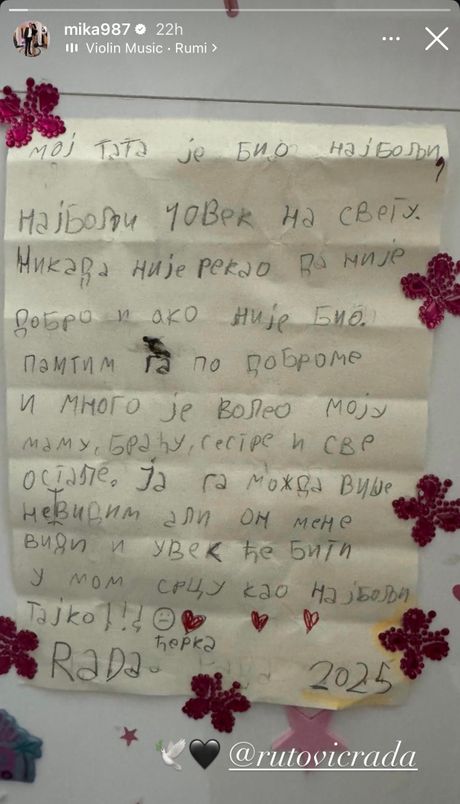 mika987 22h
Violin Music · Rumi >
мој тата је био најбољи,
најбољи човек на свету.
Никада није рекао да није
добро и ако није био.
памтим га по доброме
и много је волео моју
маму, браћу, сестре и све
остале. Ја га можда више
невидим али он мене
види и увек ће бити
у мом срцу као најбољи
тајко!!!
ћерка
Rada
2025
@rutovicrada